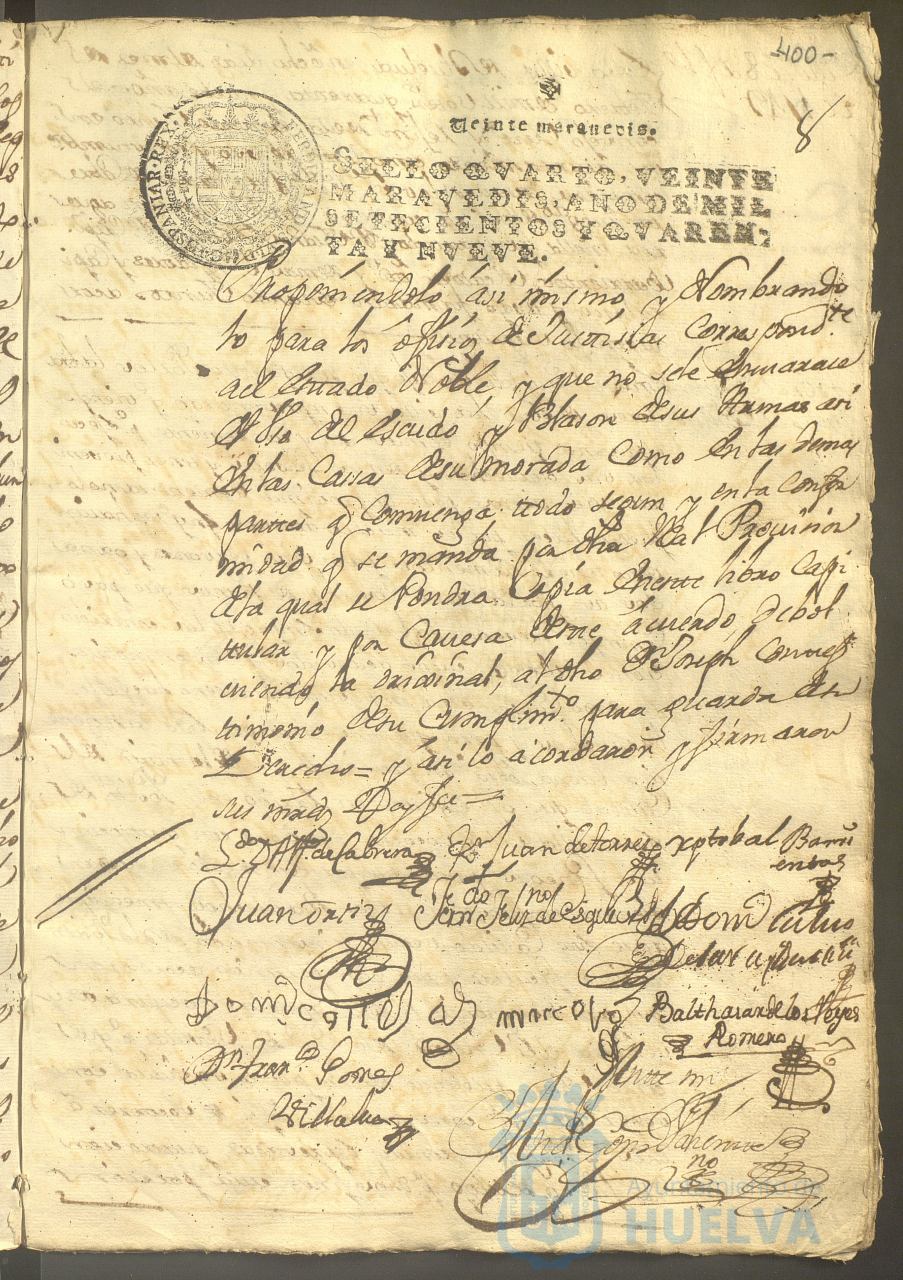 400-
8
Veinte maravedis.
SELLO QVARTO, VEINTE
MARAVEDIS, AÑO DE MIL
SETECIENTOS Y QVAREN-
TA Y NVEVE.
HISPANIAR·REX
Proponiendolo ási mismo y Nombrando
lo para los ofisios de Justisias Correspond.te
ael Estado Noble, y que no sele embarase
el Uso del escudo y Blason desus Armas asi
En las Casas desu morada como En las demas
partes q Comvenga ttodo segun y en la Confor
midad q se manda por dha Real Provision
dela qual se Pondra Copia Eneste libro Capi
ttular y por Cavesa deste ácuerdo debol
viendo la orixinal, al dho Dn Joseph Con tes
timonio desu Cumplim.to para guarda desu
Derecho= y asi lo acordaron y firmaron
sus mrds Doy fee=
de Cabrera
Juan de torres
xptobal Barri
entos
Juan ortiz
Balthasar de los Reyes
Romero
Dn Fran.co Gomes
Villalva
Antte mi
Ayuntamiento de
HUELVA